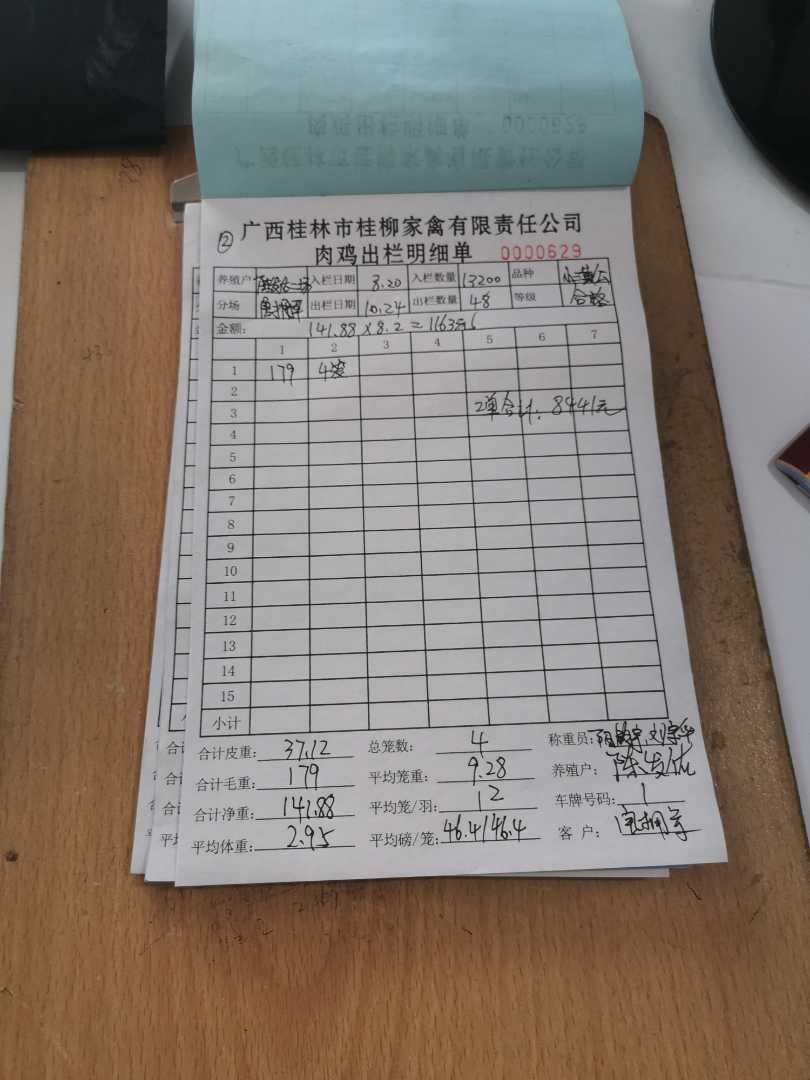 ② 广西桂林市桂柳家禽有限责任公司
肉鸡出栏明细单 0000629
养殖户 入栏日期 8.20 入栏数量 13200 品种
分场 出栏日期 10.24 出栏数量 48 等级 合格
金额: 141.88 × 8.2 = 1163元
1 2 3 4 5 6 7
1 179 4笼
2
3 2单合计: 8441元
4
5
6
7
8
9
10
11
12
13
14
15
小计
合计皮重: 37.12 总笼数: 4 称重员:
合计毛重: 179 平均笼重: 9.28 养殖户: 陈
合计净重: 141.88 平均笼/羽: 12 车牌号码: 1
平均体重: 2.95 平均磅/笼: 46.4/46.4 客户: